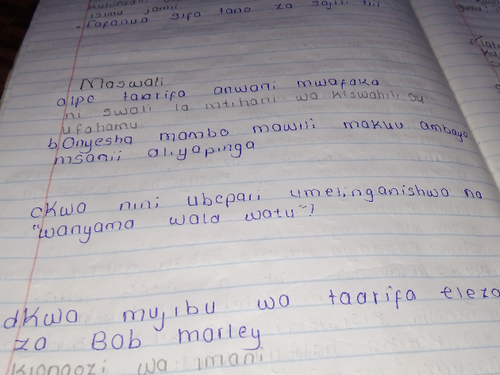 isimu jamii
Fafanua sifa tano za sajili hii
Maswali
a ipe taarifa anwani mwafaka
ni swali la mtihani wa kiswahili au
ufahamu
b. Onyesha mambo mawili makuu ambayo
msanii aliyapinga
c Kwa nini ubepari umelinganishwa na
"wanyama wala watu"?
d Kwa mujibu wa taarifa eleza
za Bob marley
Kiongozi wa imani